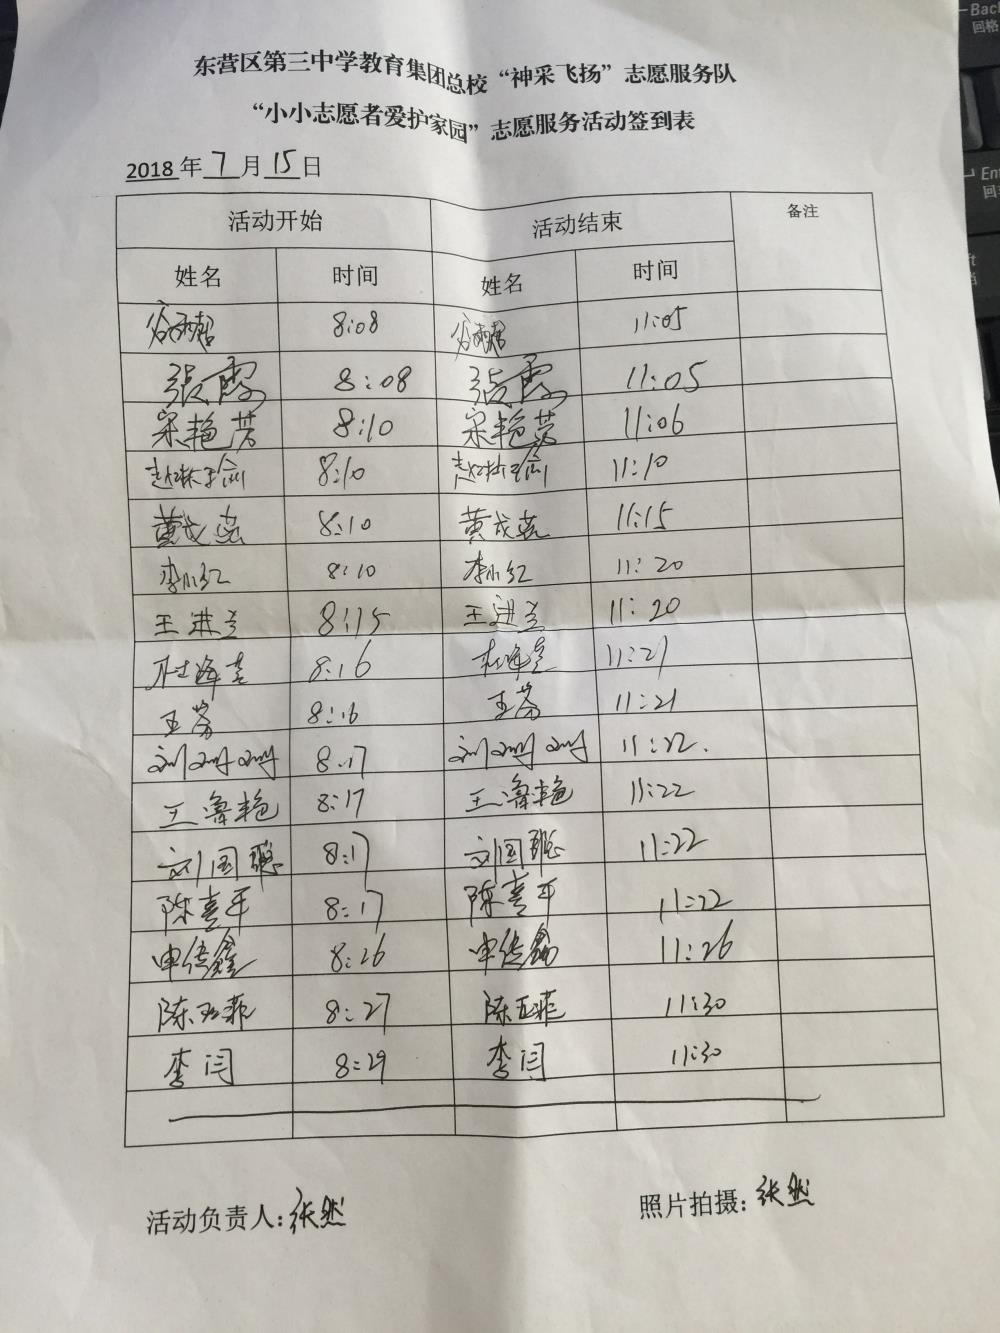 东营区第三中学教育集团总校“神采飞扬”志愿服务队
“小小志愿者爱护家园”志愿服务活动签到表
2018年7月15日
活动开始 活动结束 备注
姓名 时间 姓名 时间
8:08 11:05
张霞 8:08 张霞 11:05
宋艳芳 8:10 宋艳芳 11:06
8:10 11:10
黄成蕊 8:10 黄成蕊 11:15
李小红 8:10 李小红 11:20
王进兰 8:15 王进兰 11:20
8:16 11:21
王芬 8:16 王芬 11:21
刘 8:17 刘 11:22.
王鲁艳 8:17 王鲁艳 11:22
刘国聪 8:17 刘国聪 11:22
陈喜平 8:17 陈喜平 11:22
申传鑫 8:26 申传鑫 11:26
陈玉菲 8:27 陈玉菲 11:30
李闫 8:29 李闫 11:30
活动负责人:张然 照片拍摄:张然
Back
回格
Ent
回车